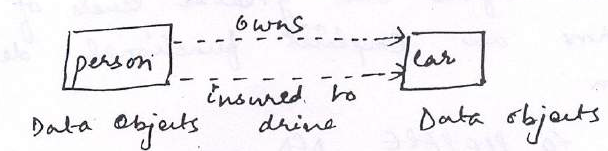 owns
person
car
insured to
drive
Data Objects
Data objects